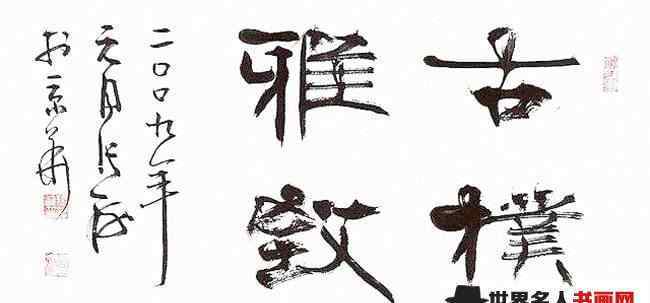 古樸
雅致
二〇〇九年
元月张海
於京華
世界名人书画网